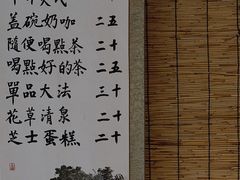 蓋碗奶咖 二五十
隨便喝點茶 二十
喝點好的茶 二五十
單品大法 三十
花草清泉 二十
芝士蛋糕 二十